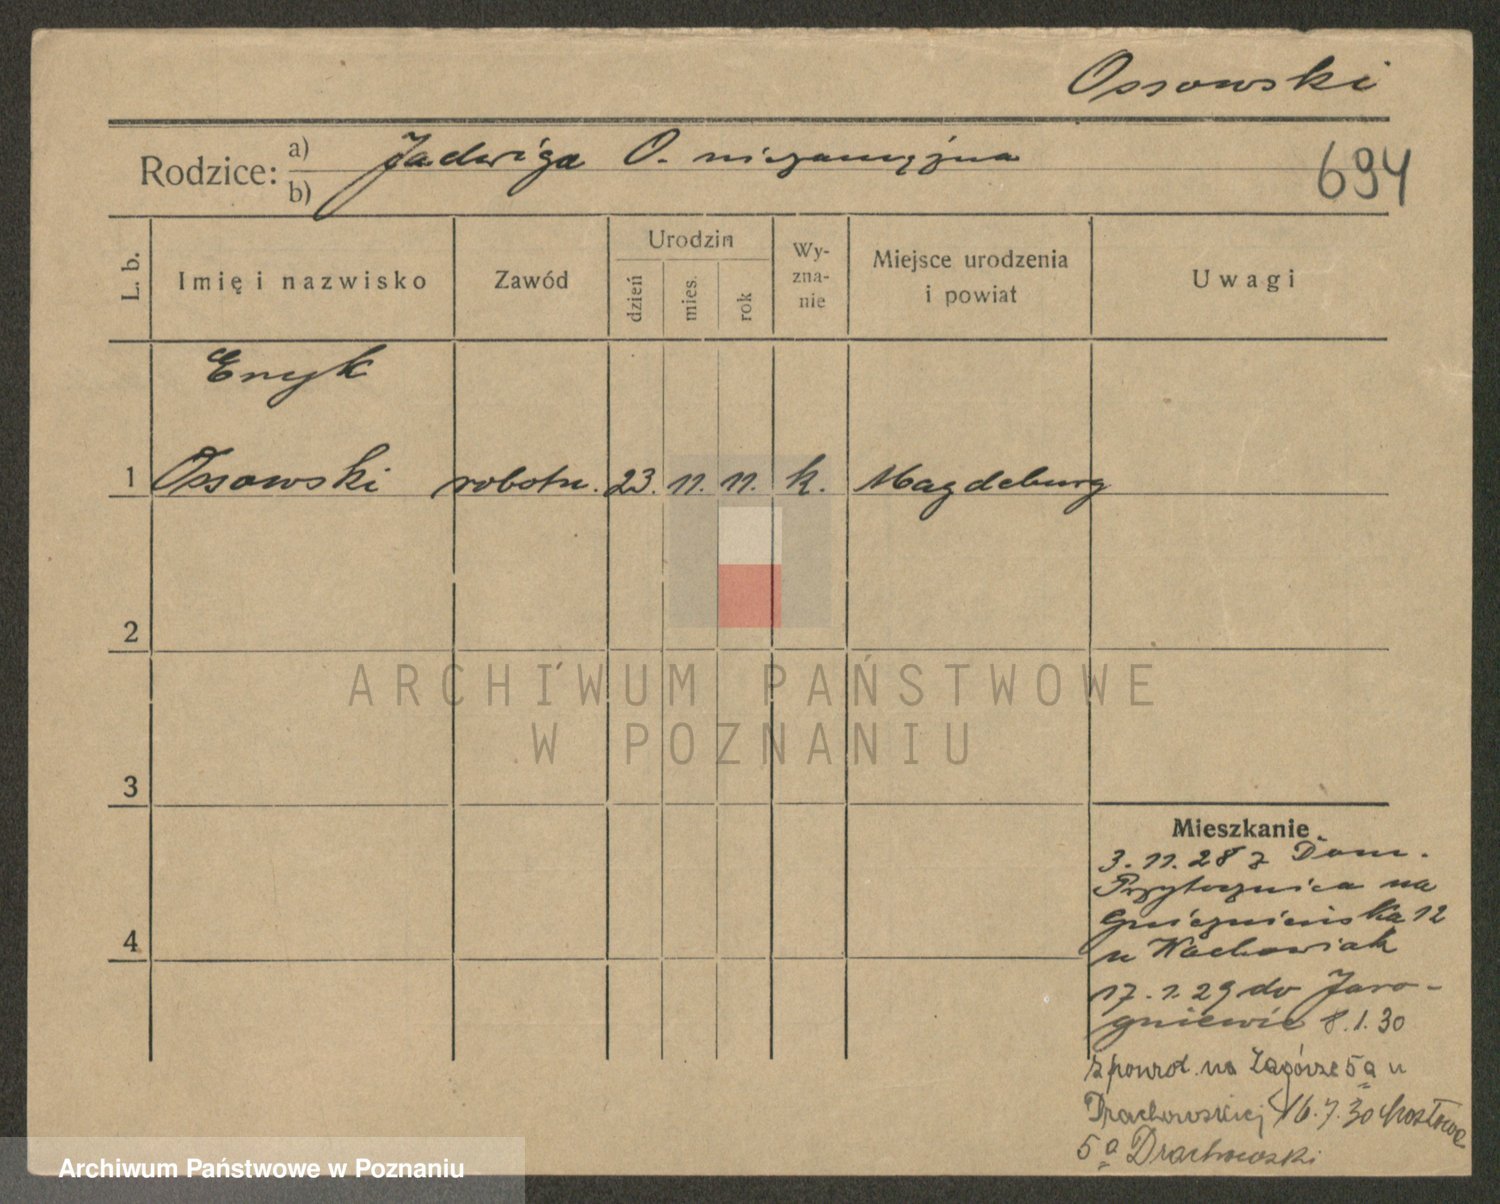 Ossowski
Rodzice: a) Jadwiga O. niezamężna
b)
694
L. b. Imię i nazwisko Zawód Urodzin dzień mies. rok Wy-zna-nie Miejsce urodzenia i powiat Uwagi
Eryk
1 Ossowski robotn. 23. 11. 11. k. Magdeburg
2
ARCHIWUM PAŃSTWOWE
W POZNANIU
3
Mieszkanie
3. 11. 28 z Dom.
Przytocznica na
Gnieźnieńska 12
u Wachowiak
4
17. 1. 29 do Jaro-
gniewic 8. 1. 30
z powrot. na Zagórze 5a u
Drachowskiej 16. 7. 30 Mostowa
5a Drachowski
Archiwum Państwowe w Poznaniu